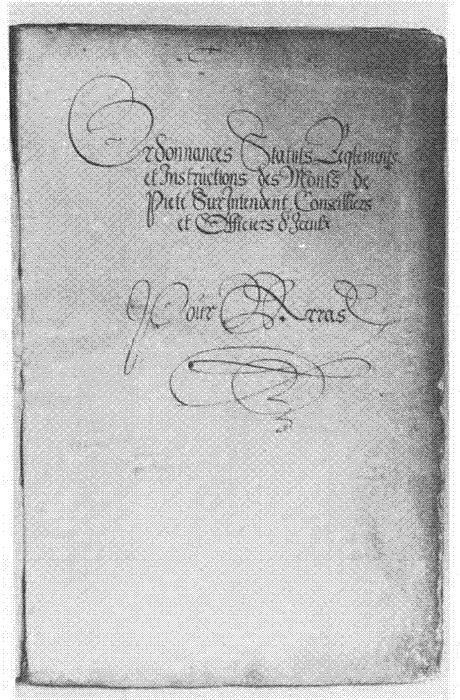 Ordonnances Statuts Reglements
et Instructions des Monts de
Piete Sur Intendent Conseilliers
et Officiers d'Iceulx
Pour Arras